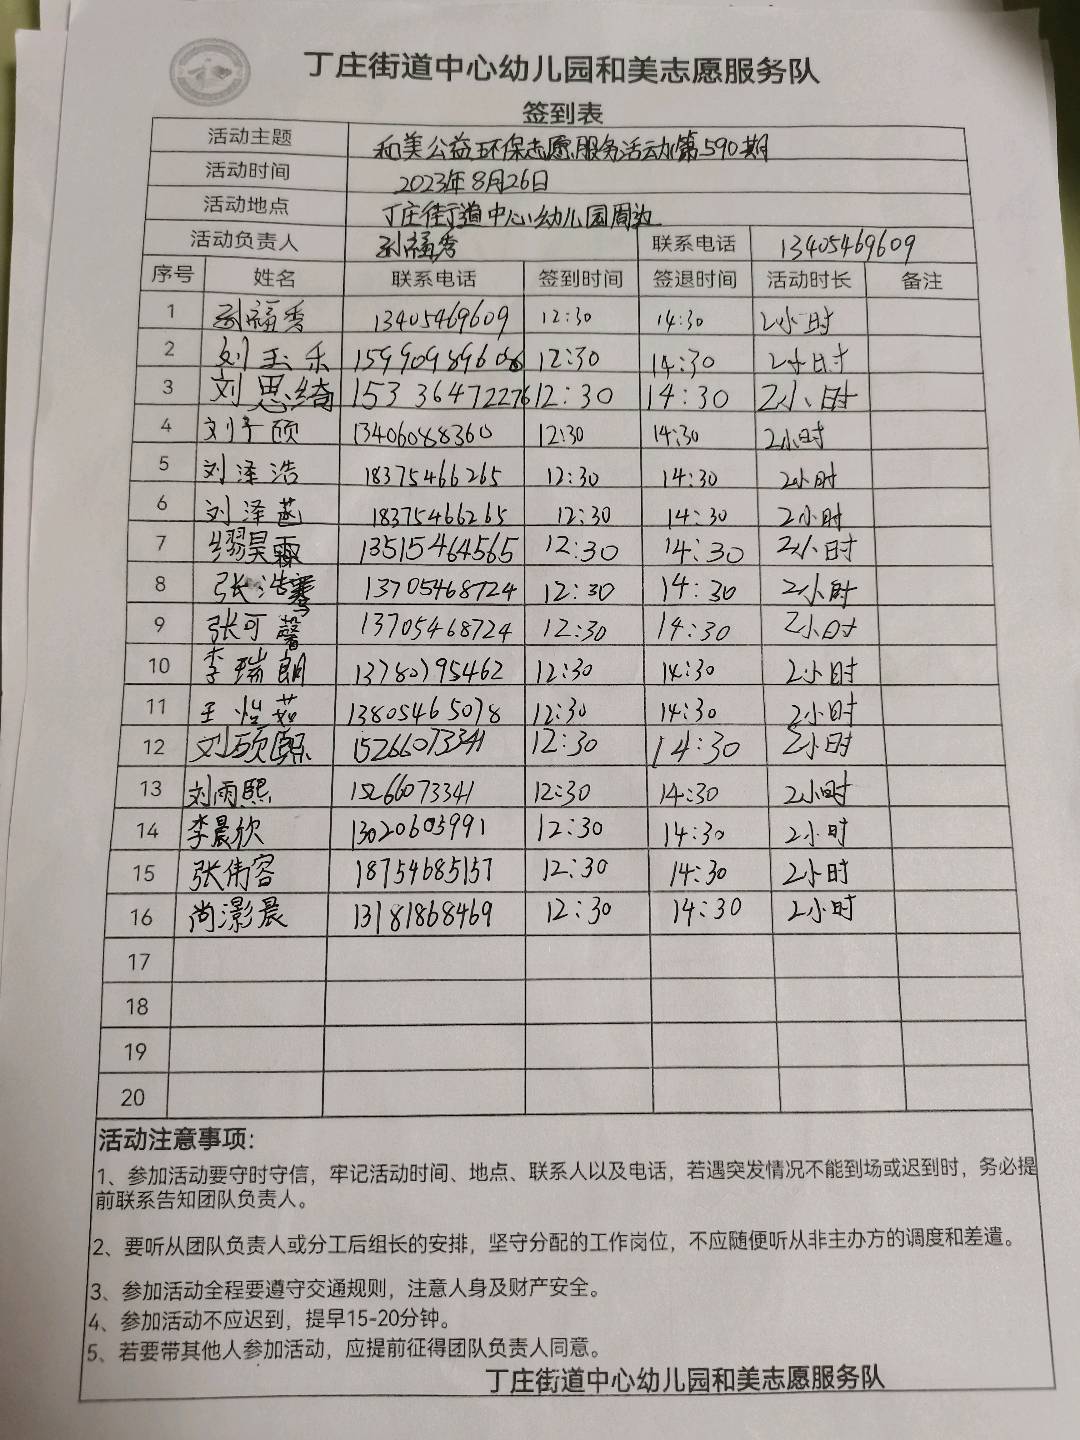 丁庄街道中心幼儿园和美志愿服务队
签到表
活动主题 和美公益环保志愿服务活动第590期
活动时间 2023年8月26日
活动地点 丁庄街道中心幼儿园周边
活动负责人 孙福秀 联系电话 13405469609
序号 姓名 联系电话 签到时间 签退时间 活动时长 备注
1 孙福秀 13405469609 12:30 14:30 2小时
2 刘玉乐 15990989608 12:30 14:30 2小时
3 刘思绮 15336472276 12:30 14:30 2小时
4 刘予硕 13406088360 12:30 14:30 2小时
5 刘泽浩 18375466265 12:30 14:30 2小时
6 刘泽菡 18375466265 12:30 14:30 2小时
7 昊霖 13515464565 12:30 14:30 2小时
8 张浩骞 13705468724 12:30 14:30 2小时
9 张可馨 13705468724 12:30 14:30 2小时
10 李瑞朗 13780795462 12:30 14:30 2小时
11 王怡茹 13805465078 12:30 14:30 2小时
12 刘硕熙 15266073341 12:30 14:30 2小时
13 刘雨熙 15266073341 12:30 14:30 2小时
14 李晨欣 13020603991 12:30 14:30 2小时
15 张伟容 18754685157 12:30 14:30 2小时
16 尚滟晨 13181868469 12:30 14:30 2小时
17
18
19
20
活动注意事项：
1、参加活动要守时守信，牢记活动时间、地点、联系人以及电话，若遇突发情况不能到场或迟到时，务必提
前联系告知团队负责人。
2、要听从团队负责人或分工后组长的安排，坚守分配的工作岗位，不应随便听从非主办方的调度和差遣。
3、参加活动全程要遵守交通规则，注意人身及财产安全。
4、参加活动不应迟到，提早15-20分钟。
5、若要带其他人参加活动，应提前征得团队负责人同意。
丁庄街道中心幼儿园和美志愿服务队